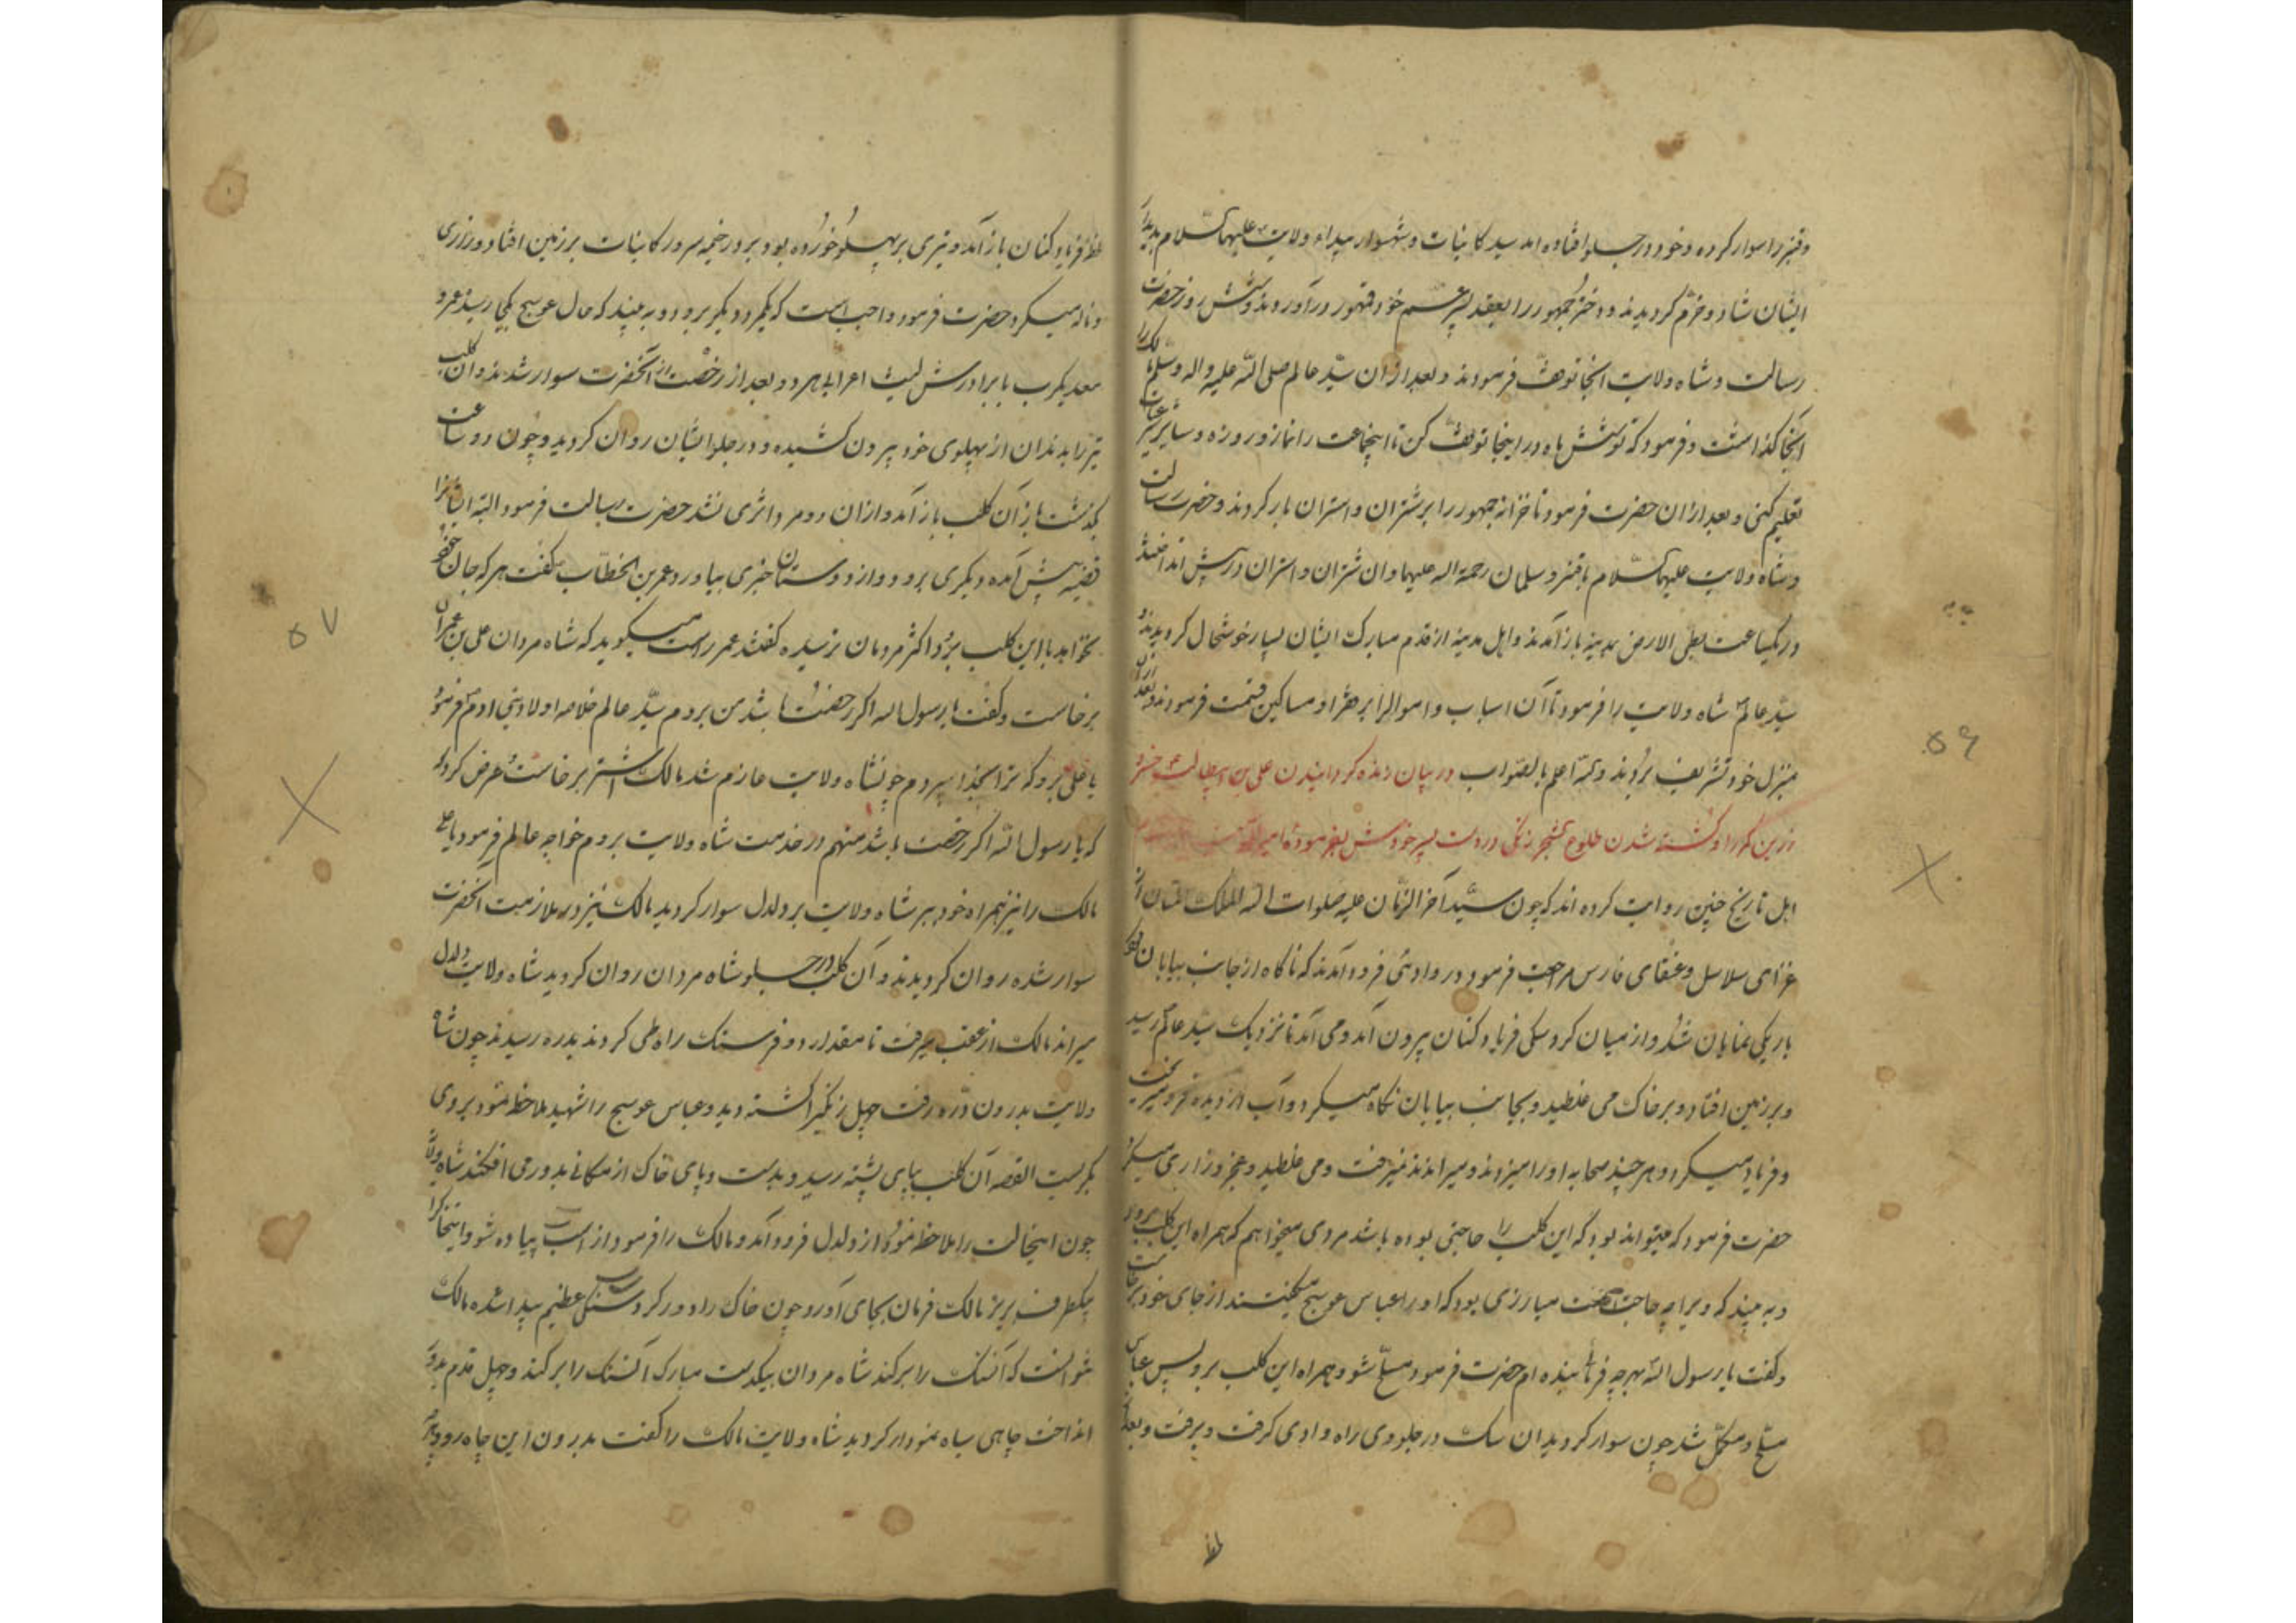 وقنبر را سوار کرده و خود در جلو افتاده اند سید کاینات و شهسوار میدان ولایت علیهما السلام بدیدار
ایشان شاد و خرّم کردیدند و دختر جمهور را بعقد پسر عم خود قهور در آوردند و شش روز حضرت
رسالت و شاه ولایت آنجا توقف فرمودند و بعد ازان سیّد عالم صلی الله علیه و اله و سلم مالک را
آنجا کذاشت و فرمود که تو شش ماه در اینجا توقف کن تا اینجماعت را نماز و روزه و سایر شرعیات
تعلیم کنی و بعد ازان حضرت فرمود تا خزانه جمهور را بر شتران و استران بار کردند و حضرت رسالت
و شاه ولایت علیهما السلام با قنبر و سلمان رحمة الله علیهما وان شتران و استران در پیش انداختند
و در یکساعت بطی الارض بمدینه باز آمدند و اهل مدینه از قدم مبارک ایشان بسیار خوشحال کردیدند و
سیّد عالم شاه ولایت را فرمود تا آن اسباب و اموال را بر فقرا و مساکین قسمت فرمودند و بعد ازان
بمنزل خود تشریف بردند والله اعلم بالصواب در بیان زنده کردانیدن علی بن ابیطالب خسرو
زرین کمر را و کشته شدن طلوع زنکی در دست پسر خودش بفرموده امیر
اهل تاریخ چنین روایت کرده اند که چون سیّد آخر الزمان علیه صلوات الله الملک المنان از
غزای سلاسل و عنقای فارس مراجعت فرمود در وادئی فرود آمدند که ناکاه از جانب بیابان کرد
باریکی نمایان شد و از میان کرد سکی فریاد کنان بیرون آمد و می آمد تا نزدیک سید عالم رسید
و بر زمین افتاد و بر خاک می غلطید و بجانب بیابان نکاه میکرد و آب از دیده فرو میریخت
و فریاد میکرد و هر چند صحابه او را میزدند و میراندند نمیرفت و می غلطید و عجز و زاری میکرد
حضرت فرمود که میتواند بود که این کلب را حاجتی بوده باشد مردی میخواهم که همراه این کلب برود
و به بیند که ویرا چه حاجتست مبارزی بود که او را عباس عوسج میکفتند از جای خود برخاست
و کفت یا رسول الله بهر چه فرمائی بنده ام حضرت فرمود مسلّح شو و همراه این کلب برو پس عباس
مسلّح و مکمّل شد چون سوار کردید ان سک در جلو وی راه وادی کرفت و برفت و بعد از
لحظه فریاد کنان باز آمد و تیری بر پهلو خورده بود بر در خیمه سرور کاینات بر زمین افتاد و زاری
و ناله میکرد حضرت فرمود واجب است که یکمرد دیکر برود و به بیند که حال عوسج بکجا رسید عمرو
معدیکرب با برادرش لیث اعرابی هر دو بعد از رخصت از آنحضرت سوار شدند وان کلب
تیر را بدندان از پهلوی خود بیرون کشیده و در جلو ایشان روان کردید و چون دو ساعت
بکذشت باز آن کلب باز آمد و ازان دو مرد اثری نشد حضرت رسالت فرمود البته ایشانرا
قضیه پیش آمده دیکری برود و از دوستان خبری بیاورد عمر بن الخطاب کفت هر که جان خود
نخواهد با این کلب برود اکثر مردمان ترسیده کفتند عمر راست میکوید که شاه مردان علی بن عمران
برخاست و کفت یا رسول الله اکر رخصت باشد من بروم سیّد عالم خلاصه اولاد بنی ادم فرمود
یا علی برو که ترا بخدا سپردم چون شاه ولایت عازم شد مالک اشتر برخاست و عرض کرد
که یا رسول الله اکر رخصت باشد منهم در خدمت شاه ولایت بروم خواجه عالم فرمود یا علی
مالک را نیز همراه خود ببر شاه ولایت بر دلدل سوار کردید مالک نیز در ملازمت آنحضرت
سوار شده روان کردیدند و آن کلب در جلو شاه مردان روان کردید شاه ولایت دلدل
میراند مالک از عقب میرفت تا مقدار دو فرسنک راه طی کردند بدره رسیدند چون شاه
ولایت بدرون درّه رفت چهل زنکیرا کشته دید و عباس عوسج را شهید ملاحظه نمود بروی
بکریست القصه آن کلب بپای پشته رسید و بدست و پای خاک از مکانی بدور می افکند شاه ولایت
چون اینحالت را ملاحظه نمود از دلدل فرود آمد و مالک را فرمود از اسب پیاده شو و اینخاک را
بیکطرف بریز مالک فرمان بجای آورد و چون خاک را دور کرد سنکی عظیم پیدا شد مالک
نتوانست که آنسنک را بر کند شاه مردان بیکدست مبارک آنسنک را بر کند و چهل قدم بدور
انداخت چاهی سیاه نمودار کردید شاه ولایت مالک را کفت بدرون این چاه رو و
لحظه
۵۶
۵۷